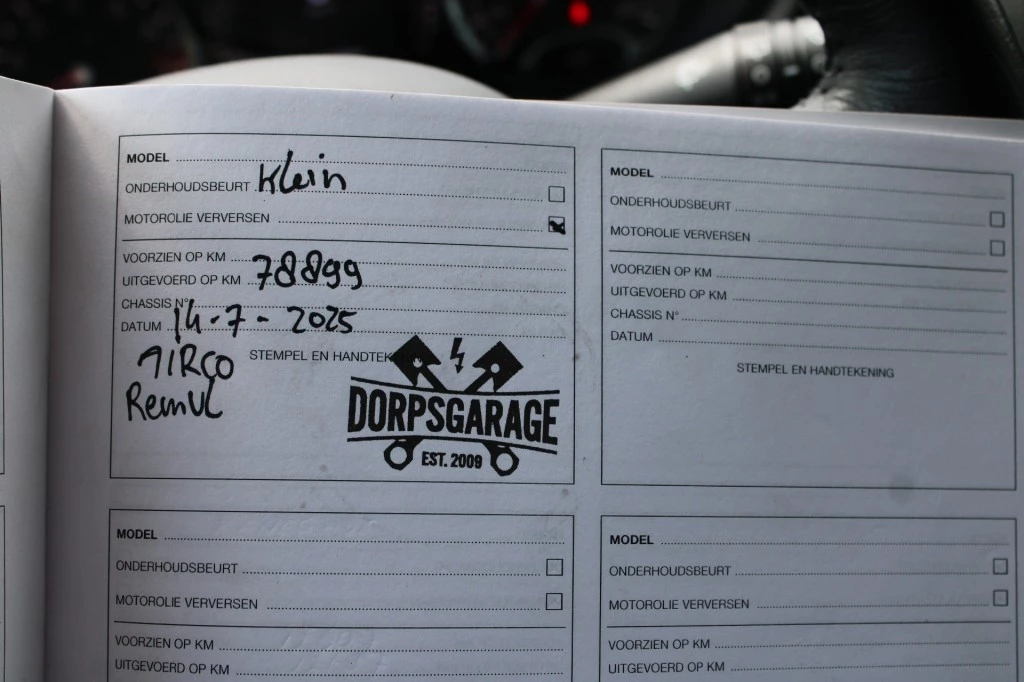 MODEL
ONDERHOUDSBEURT Klein
MOTOROLIE VERVERSEN
VOORZIEN OP KM
UITGEVOERD OP KM 78899
CHASSIS N°
DATUM 14-7-2025
STEMPEL EN HANDTEK
AIRCO
RemVL
DORPSGARAGE
EST. 2009
MODEL
ONDERHOUDSBEURT
MOTOROLIE VERVERSEN
VOORZIEN OP KM
UITGEVOERD OP KM
CHASSIS N°
DATUM
STEMPEL EN HANDTEKENING
MODEL
ONDERHOUDSBEURT
MOTOROLIE VERVERSEN
VOORZIEN OP KM
UITGEVOERD OP KM
MODEL
ONDERHOUDSBEURT
MOTOROLIE VERVERSEN
VOORZIEN OP KM
UITGEVOERD OP KM